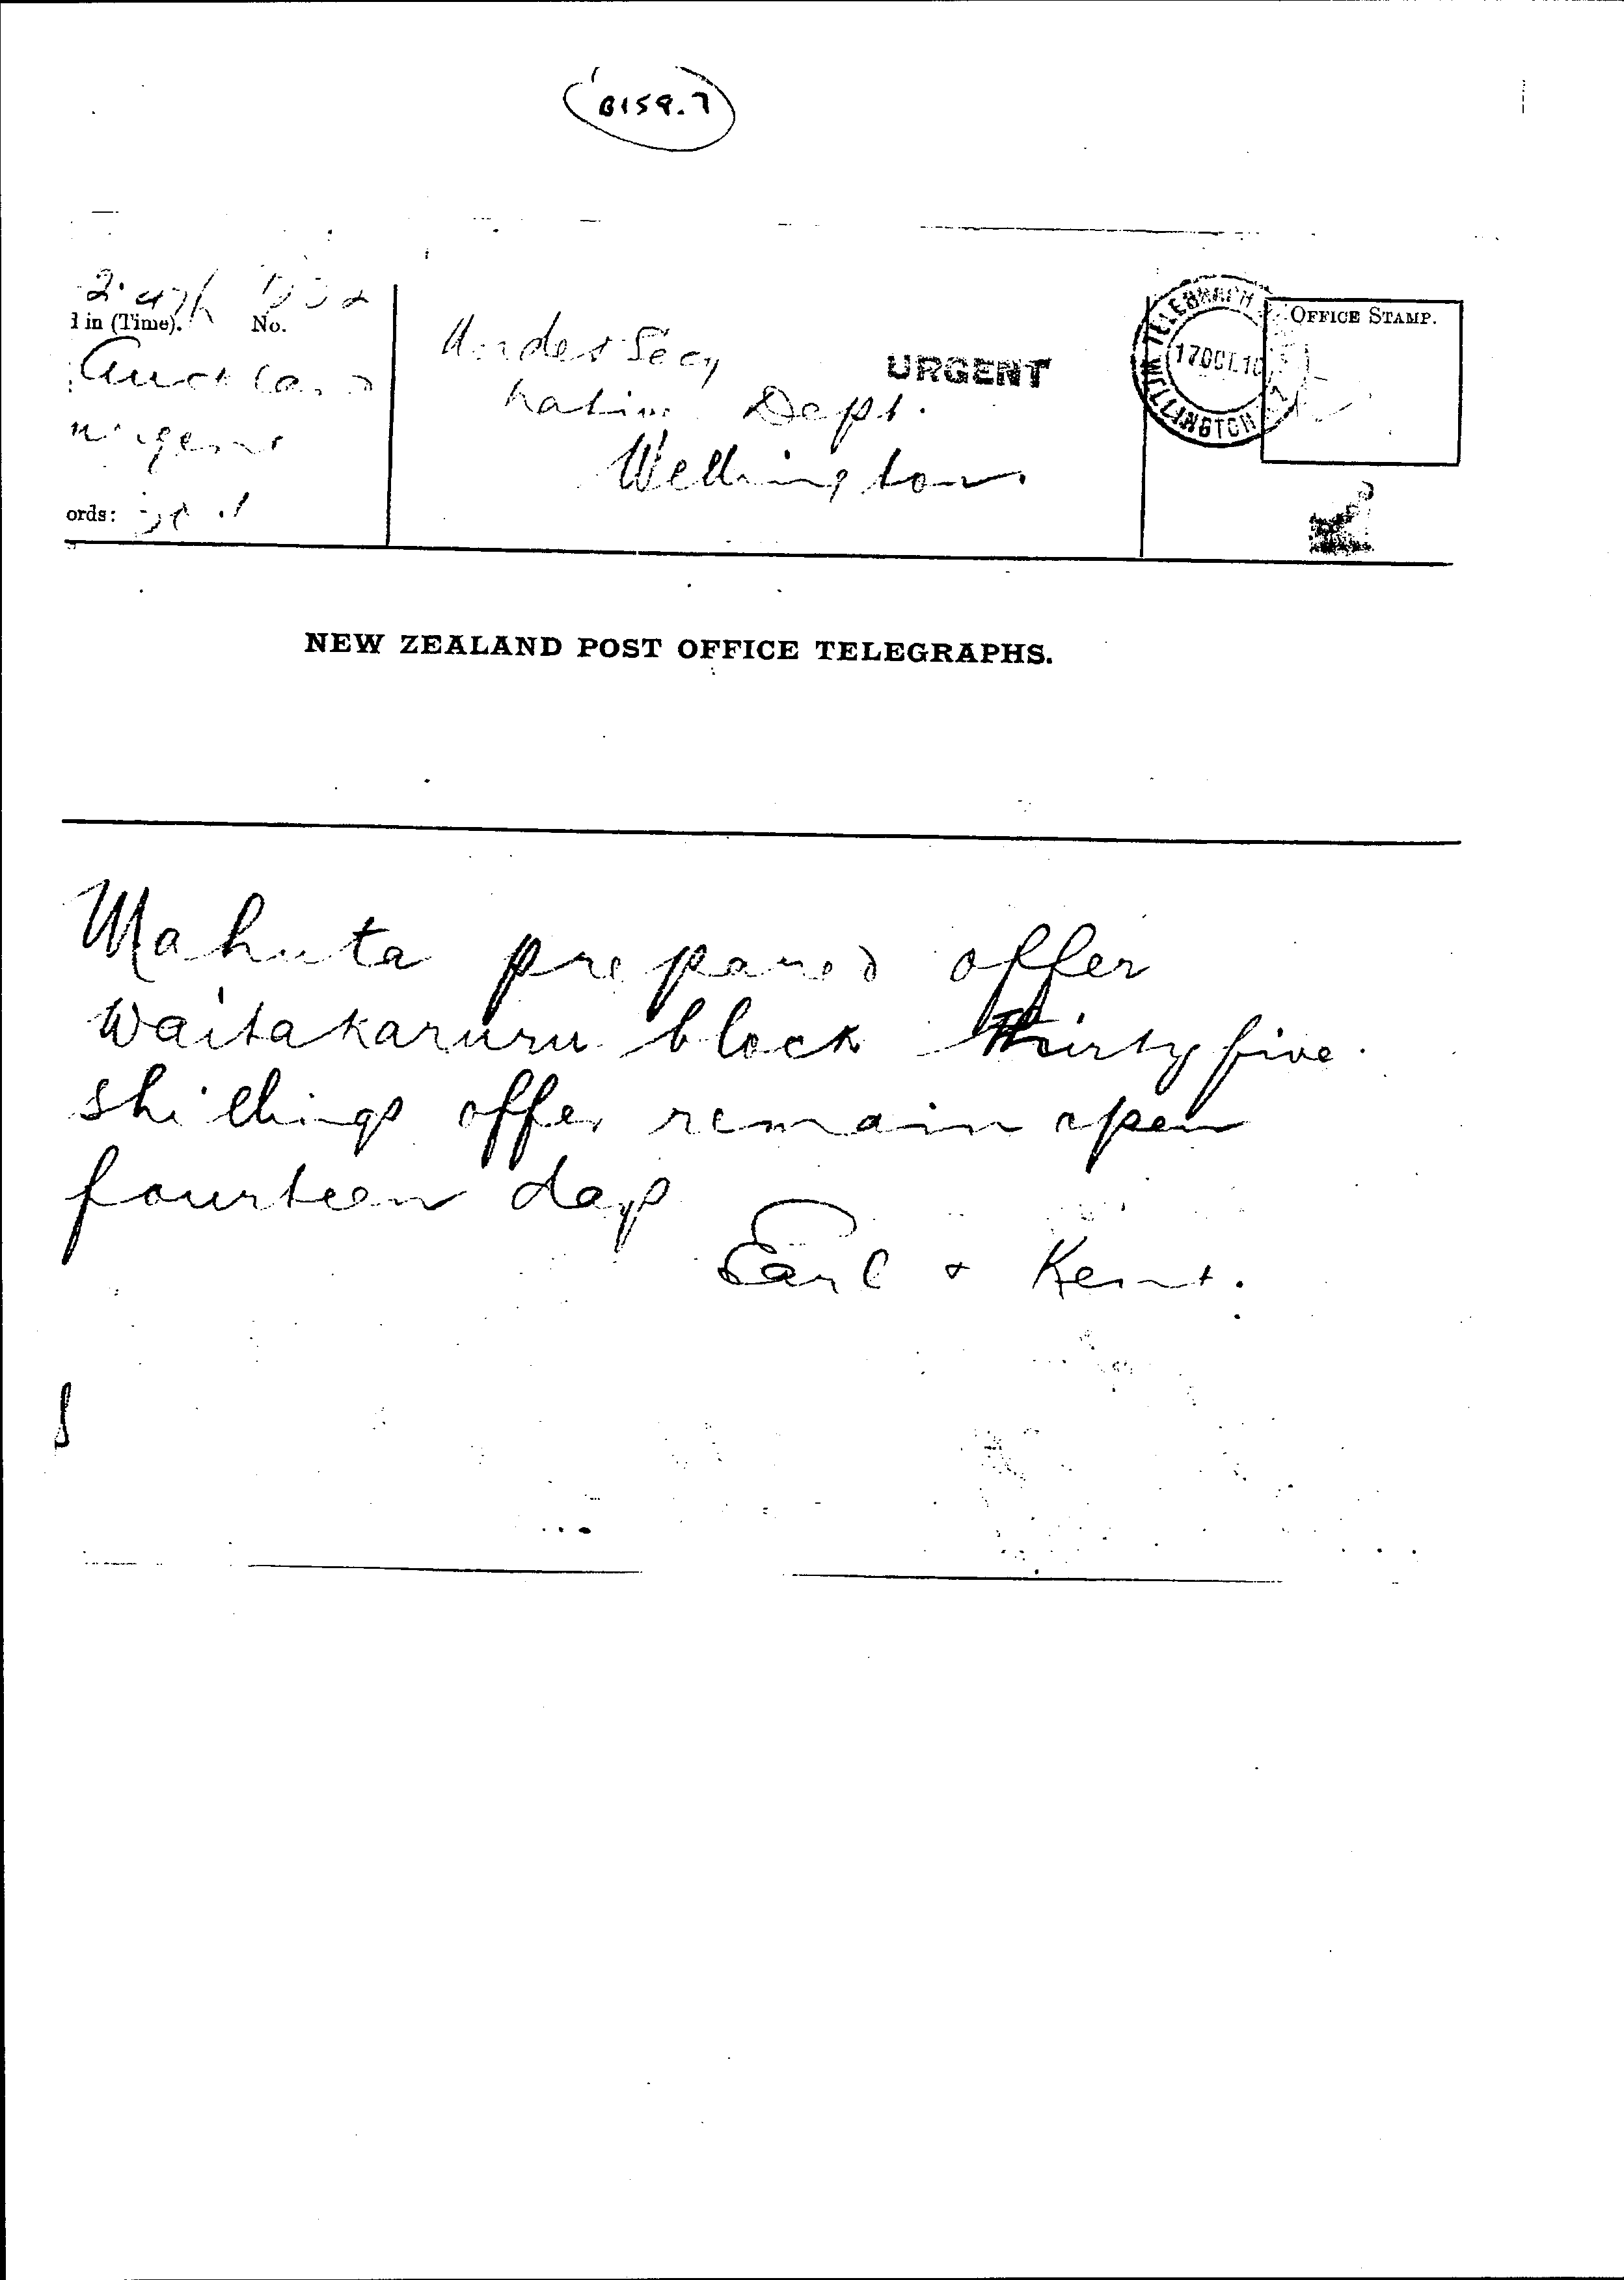 B159.7
2.47p
in (Time). No.
Auckland
urgent
ords:
Under Secy
Native Dept.
Wellington
URGENT
TELEGRAPH
17 OCT. 10
WELLINGTON
OFFICE STAMP.
NEW ZEALAND POST OFFICE TELEGRAPHS.
Mahuta prepared offer
Waitakaruru block thirtyfive
shillings offer remain open
fourteen days
Earl & Kent.